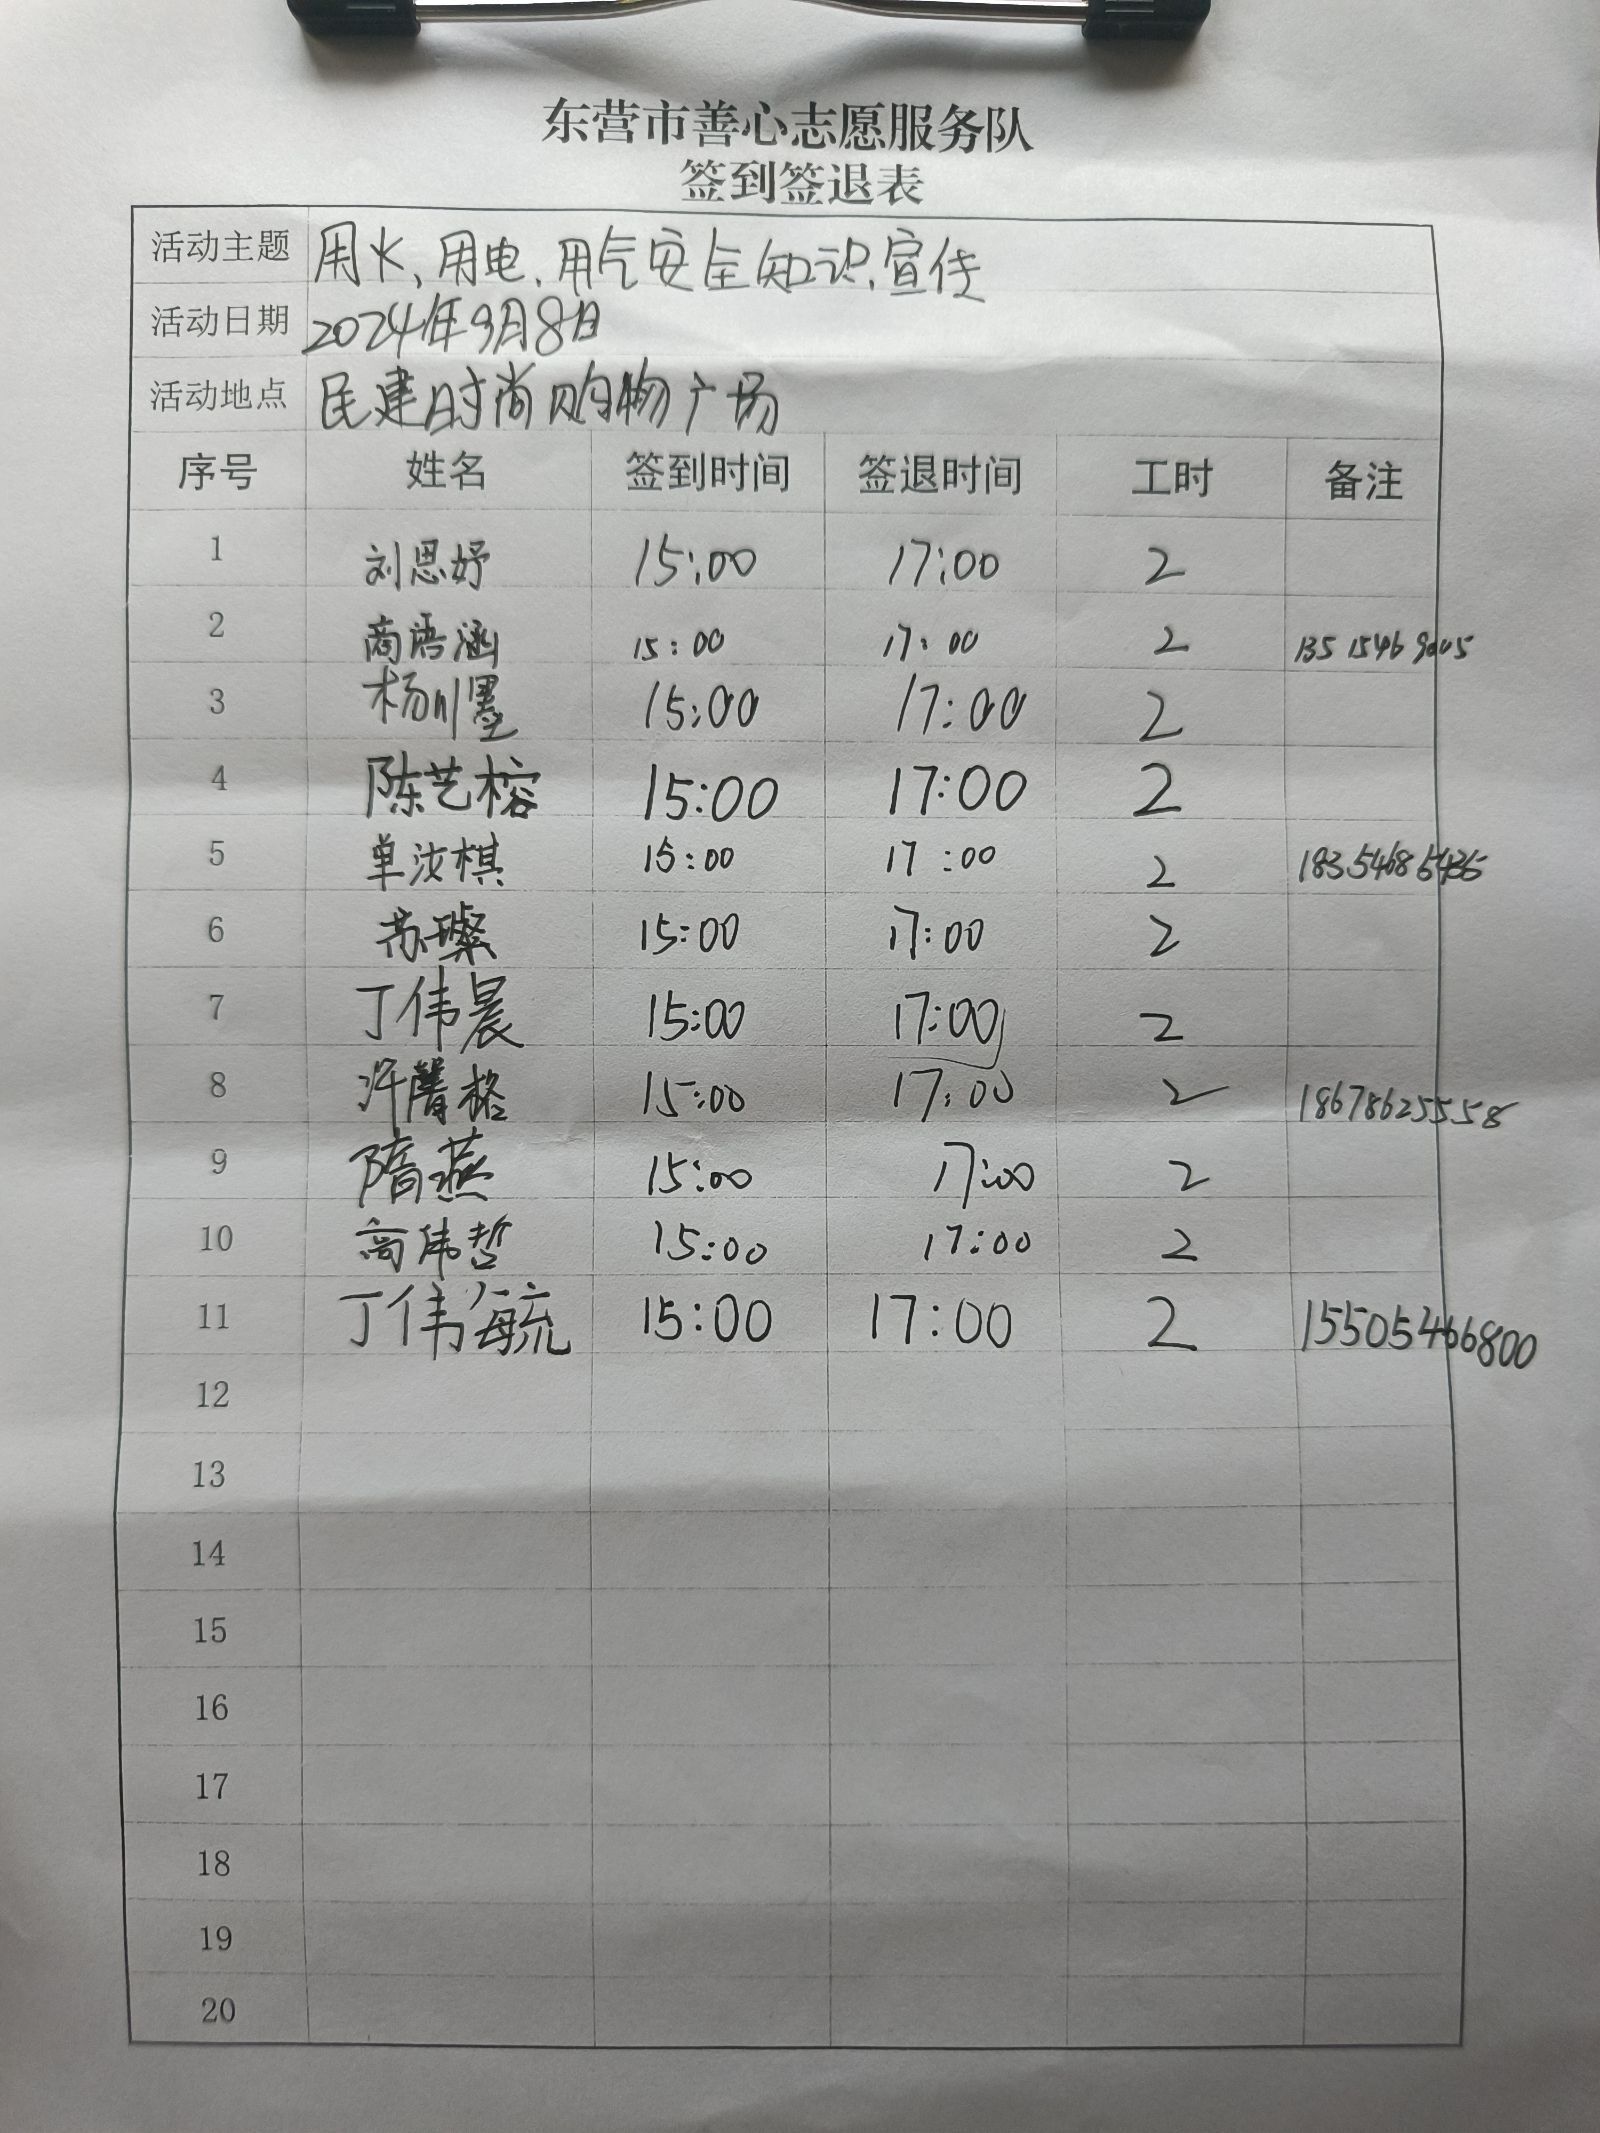 东营市善心志愿服务队
签到签退表
活动主题 用火、用电、用气安全知识宣传
活动日期 2024年9月8日
活动地点 民建时尚购物广场
序号 姓名 签到时间 签退时间 工时 备注
1 刘思妤 15:00 17:00 2
2 商语涵 15:00 17:00 2 13515469005
3 杨川墨 15:00 17:00 2
4 陈艺榕 15:00 17:00 2
5 单汝棋 15:00 17:00 2
6 苏璨 15:00 17:00 2
7 丁伟晨 15:00 17:00 2
8 15:00 17:00 2 18678625558
9 隋燕 15:00 17:00 2
10 商伟哲 15:00 17:00 2
11 丁伟海毓 15:00 17:00 2 15505466800
12
13
14
15
16
17
18
19
20